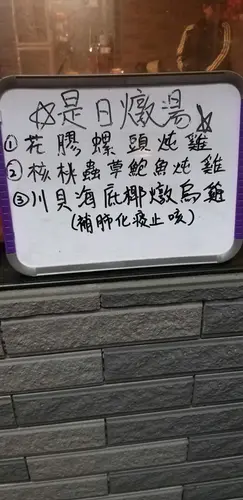 ☆是日燉湯☆
①花膠螺頭炖雞
②核桃蟲草鮑魚炖雞
③川貝海底椰燉烏雞
(補肺化痰止咳)